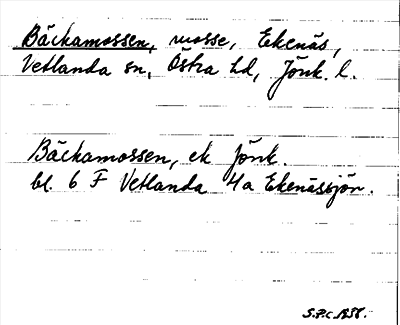 Bäckamossen, mosse, Ekenäs,
Vetlanda sn, Östra hd, Jönk. l.
Bäckamossen, ek Jönk.
bl. 6 F Vetlanda 4a Ekenässjön.
S.P.C. 1938.